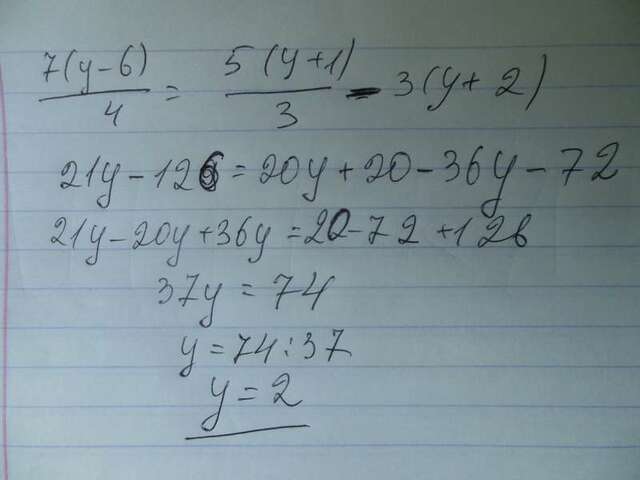 7(y-6)/4 = 5(y+1)/3 - 3(y+2)
21y-126=20y+20-36y-72
21y-20y+36y=20-72+126
37y=74
y=74:37
y=2